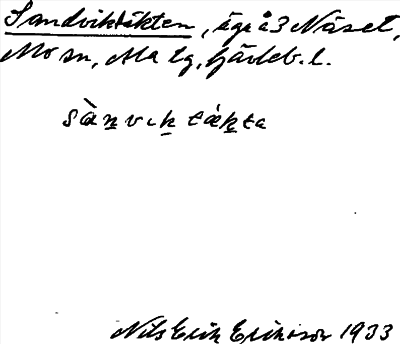 Sandviktäkten, äga å 3 Näset,
Mo sn, Ala tg, Gävleb. l.
sàn̲vɩk̲ták̲ta
Nils Erik Eriksson 1933